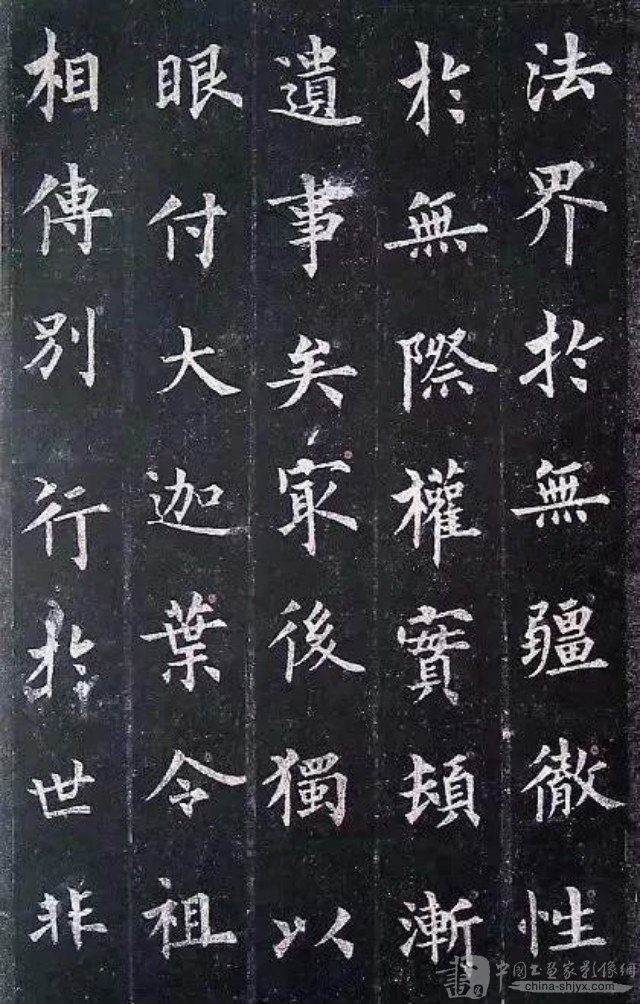 法界於無疆徹性
於無際權實頓漸
遺事矣冣後獨以
眼付大迦葉令祖
相傳別行於世非
書 中国书画家影像網
www.china-shjyx.com